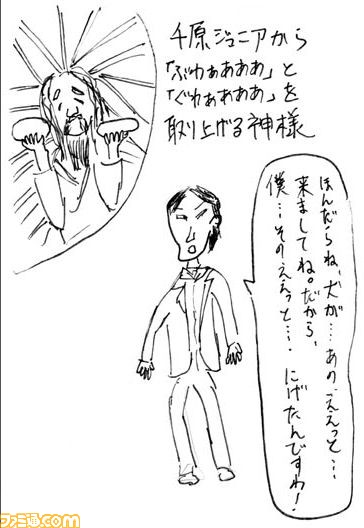 千原ジュニアから
「ぶわぁぁぁぁ」と
「ぐわぁぁぁぁ」を
取り上げる神様
ほんだらね、犬が…あの、ええっと…
来ましてね。だから、
僕…そのええっと…。にげたんですわ!
ファミ通.com